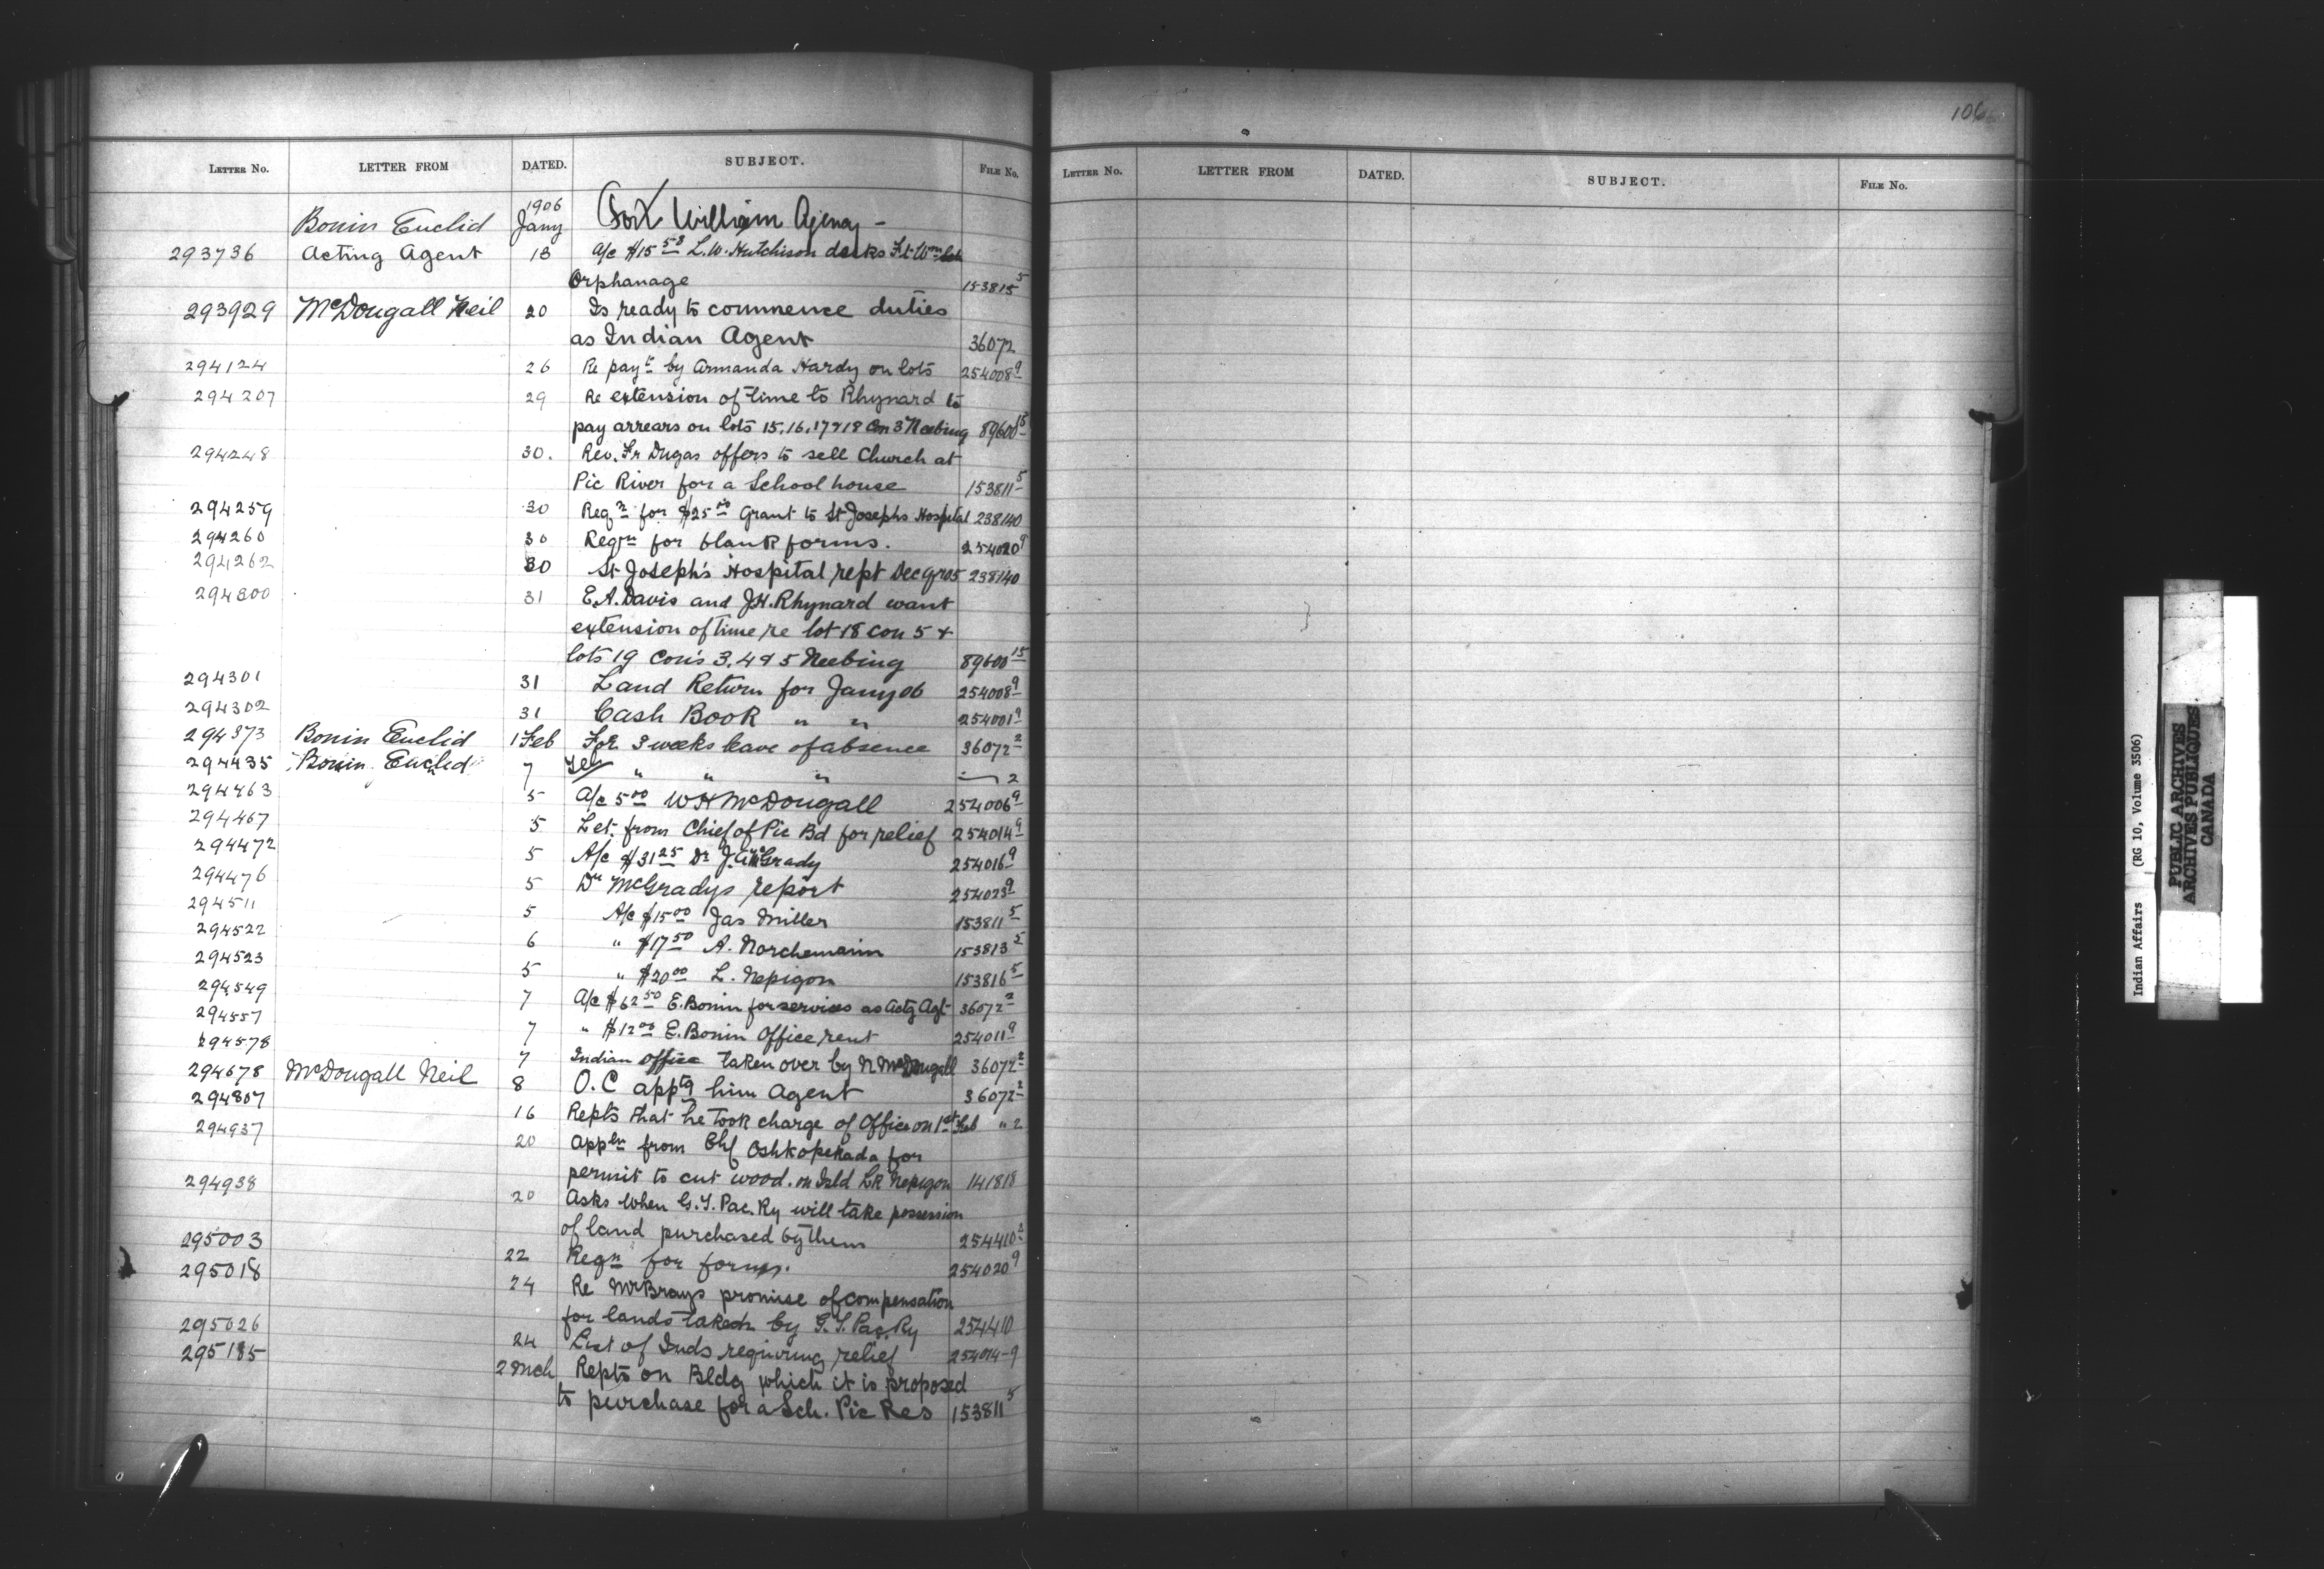 LETTER NO. LETTER FROM DATED. SUBJECT. FILE No.
1906
Bonin Euclid Jany Fort William Agency -
293736 Acting Agent 18 A/c $15 58 L.W. Hutchison desks Ft Wm
Orphanage 153815 5
293929 McDougall Neil 20 Is ready to commence duties
as Indian Agent 36072
294124 26 Re payt by Armanda Hardy on lots 254008 9
294207 29 Re extension of time to Rhynard to
pay arrears on lots 15, 16, 17 & 18 Con 3 Neebing 89600 15
294248 30. Rev. Fr Dugas offers to sell Church at
Pic River for a School house 153811 5
294259 30 Reqn for $25 00 Grant to St Josephs Hospital 238140
294260 30 Reqn for blank forms. 254020 9
294262 30 St Joseph's Hospital rept Dec qr 05 238140
294300 31 E.A. Davis and J.H. Rhynard want
extension of time re lot 18 con 5 &
lots 19 Con's 3, 4 & 5 Neebing 89600 15
294301 31 Land Return for Jany 06 254008 9
294302 31 Cash Book " " 254001 9
294373 Bonin Euclid 1 Feb For 3 weeks leave of absence 36072 2
294435 Bonin Euclid 7 Tel " " " 2
294463 5 A/c 5 00 W H McDougall 254006 9
294467 5 Let. from Chief of Pic Bd for relief 254014 9
294472 5 A/c $31 25 Dr J.A. McGrady 254016 9
294476 5 Dr McGradys report 254023 9
294511 5 A/c $15 00 Jas Miller 153811 5
294522 6 " $17 50 A. Norchemanin 153813 5
294523 5 " $20 00 L. Nepigon 153816 5
294549 7 A/c $62 50 E. Bonin for services as Actg Agt 36072 2
294557 7 " $12 00 E. Bonin Office rent 254011 9
294578 7 Indian office taken over by N McDougall 36072 2
294678 McDougall Neil 8 O.C apptg him Agent 36072 2
294807 16 Repts that he took charge of Office on 1st Feb " 2
294937 20 Appln from Chf Oshkopekada for
permit to cut wood. on Isld Lk Nepigon 141818
294938 20 Asks when G.T. Pac. Ry will take possession
of land purchased by them 254410 2
295003 22 Reqn for forms. 254020 9
295018 24 Re McBrays promise of compensation
for lands taken by G.T. Pac. Ry 254410
295026 24 List of Inds requiring relief 254014-9
295185 2 Mch Repts on Bldg which it is proposed
to purchase for a Sch. Pic Res 153811 5
106
LETTER NO. LETTER FROM DATED. SUBJECT. FILE No.
Indian Affairs (RG 10, Volume 3506)
PUBLIC ARCHIVES
ARCHIVES PUBLIQUES
CANADA